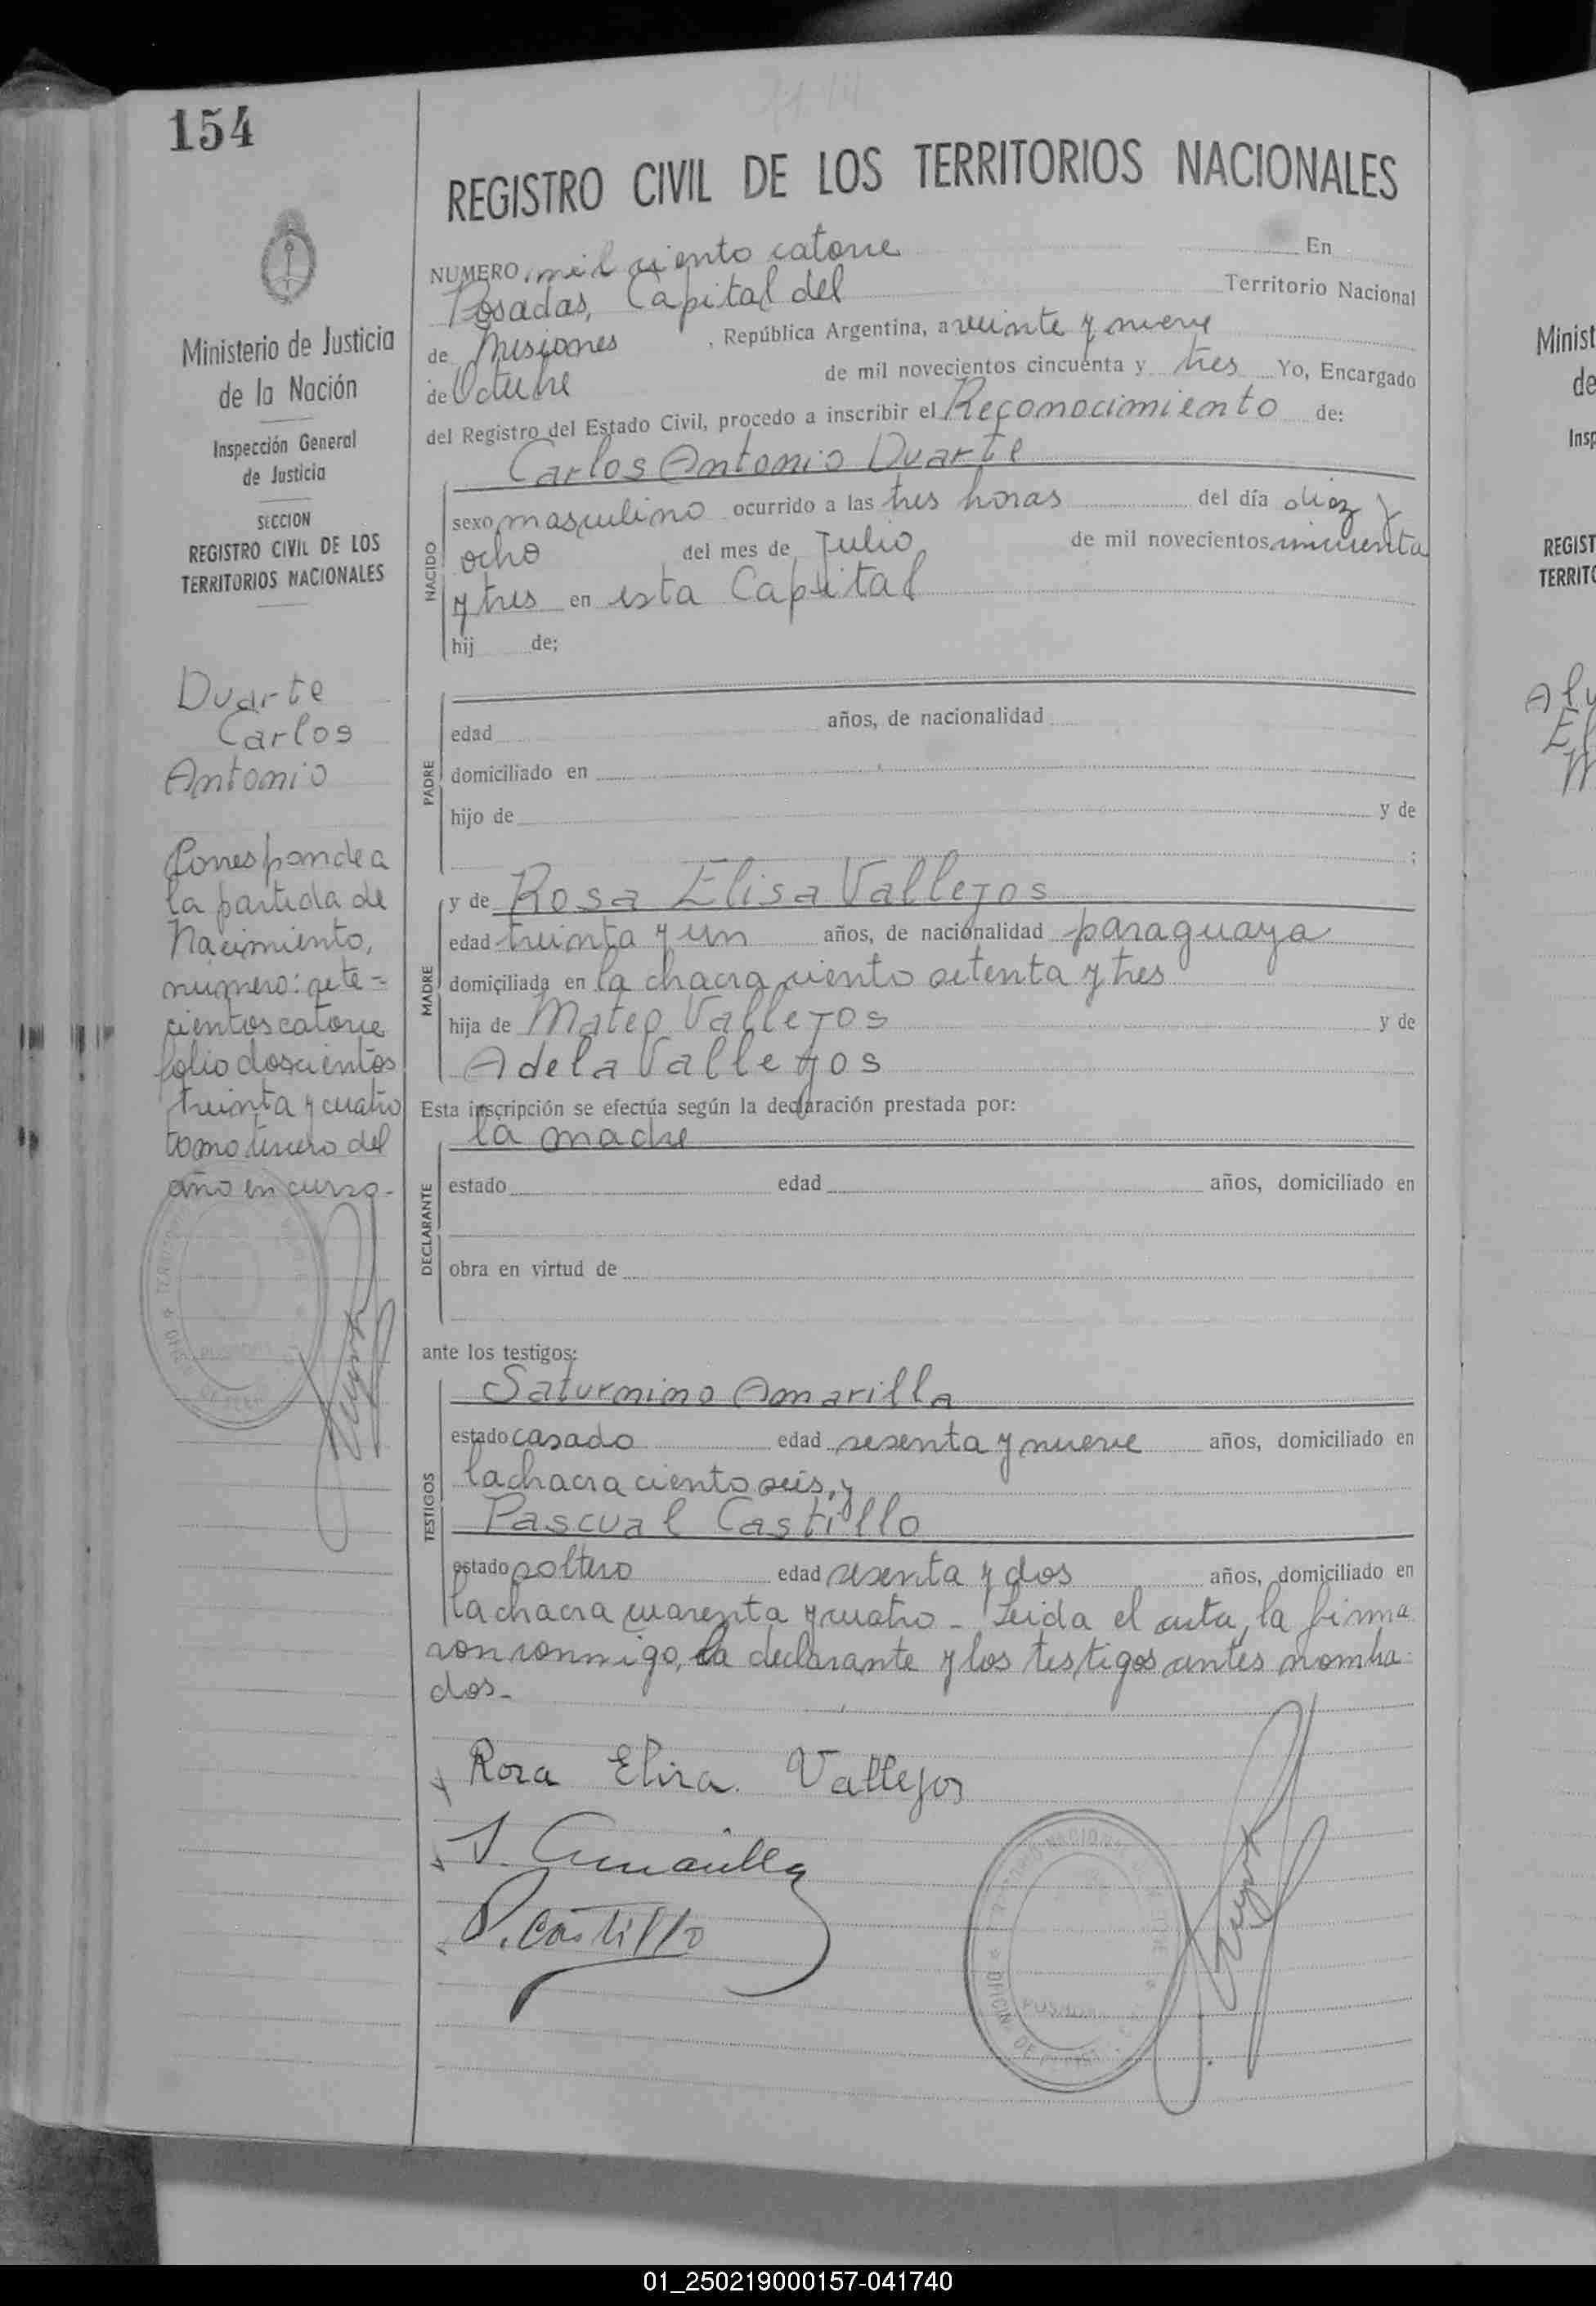 154
Ministerio de Justicia
de la Nación
Inspección General
de Justicia
SECCION
REGISTRO CIVIL DE LOS
TERRITORIOS NACIONALES
Duarte
Carlos
Antonio
Corresponde a
la partida de
Nacimiento,
número: sete-
cientos catorce
folio doscientos
treinta y cuatro
tomo tercero del
año en curso.-
REGISTRO CIVIL DE LOS TERRITORIOS NACIONALES
NUMERO mil ciento catorce En
Posadas, Capital del Territorio Nacional
de Misiones , República Argentina, a veinte y nueve
de Octubre de mil novecientos cincuenta y tres Yo, Encargado
del Registro del Estado Civil, procedo a inscribir el Reconocimiento de:
Carlos Antonio Duarte
NACIDO
sexo masculino ocurrido a las tres horas del día diez y
ocho del mes de Julio de mil novecientos cincuenta
y tres en esta Capital
hij de;
PADRE
edad años, de nacionalidad
domiciliado en
hijo de y de
;
MADRE
y de Rosa Elisa Vallejos
edad treinta y un años, de nacionalidad paraguaya
domiciliada en la chacra ciento setenta y tres
hija de Mateo Vallejos y de
Adela Vallejos
Esta inscripción se efectúa según la declaración prestada por:
la madre
DECLARANTE
estado edad años, domiciliado en
obra en virtud de
ante los testigos:
TESTIGOS
Saturnino Amarilla
estado casado edad sesenta y nueve años, domiciliado en
la chacra ciento seis, y
Pascual Castillo
estado soltero edad sesenta y dos años, domiciliado en
la chacra cuarenta y cuatro - Leida el acta, la firma
ron conmigo, la declarante y los testigos antes nombra
dos.-
Rosa Elisa Vallejos
S. Amarilla
P. Castillo
POSADAS
Minist
de
Insp
REGIST
TERRITO
01_250219000157-041740